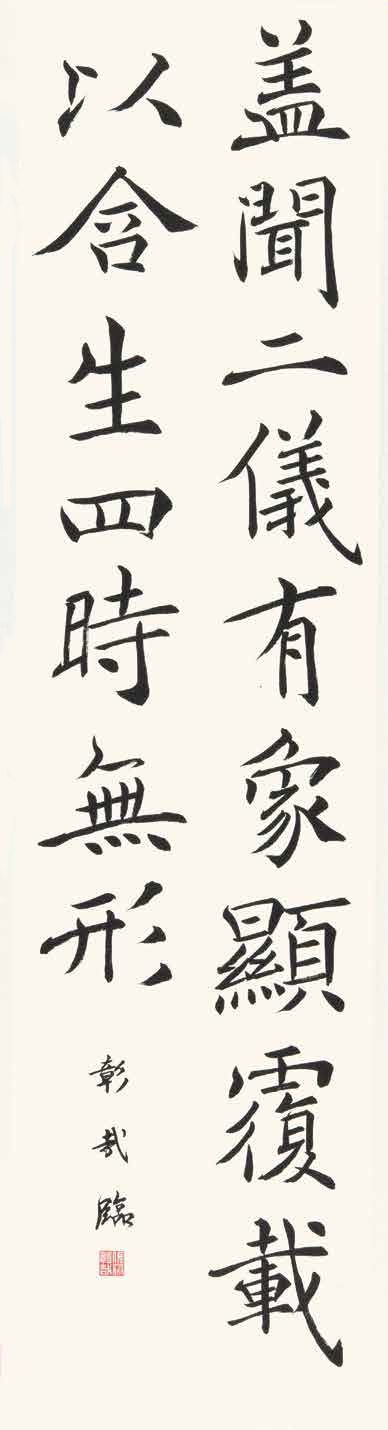 盖聞二儀有象顯覆載
以含生四時無形
彰哉臨